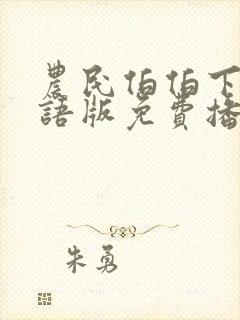 農民伯伯下
語版免費播
朱勇